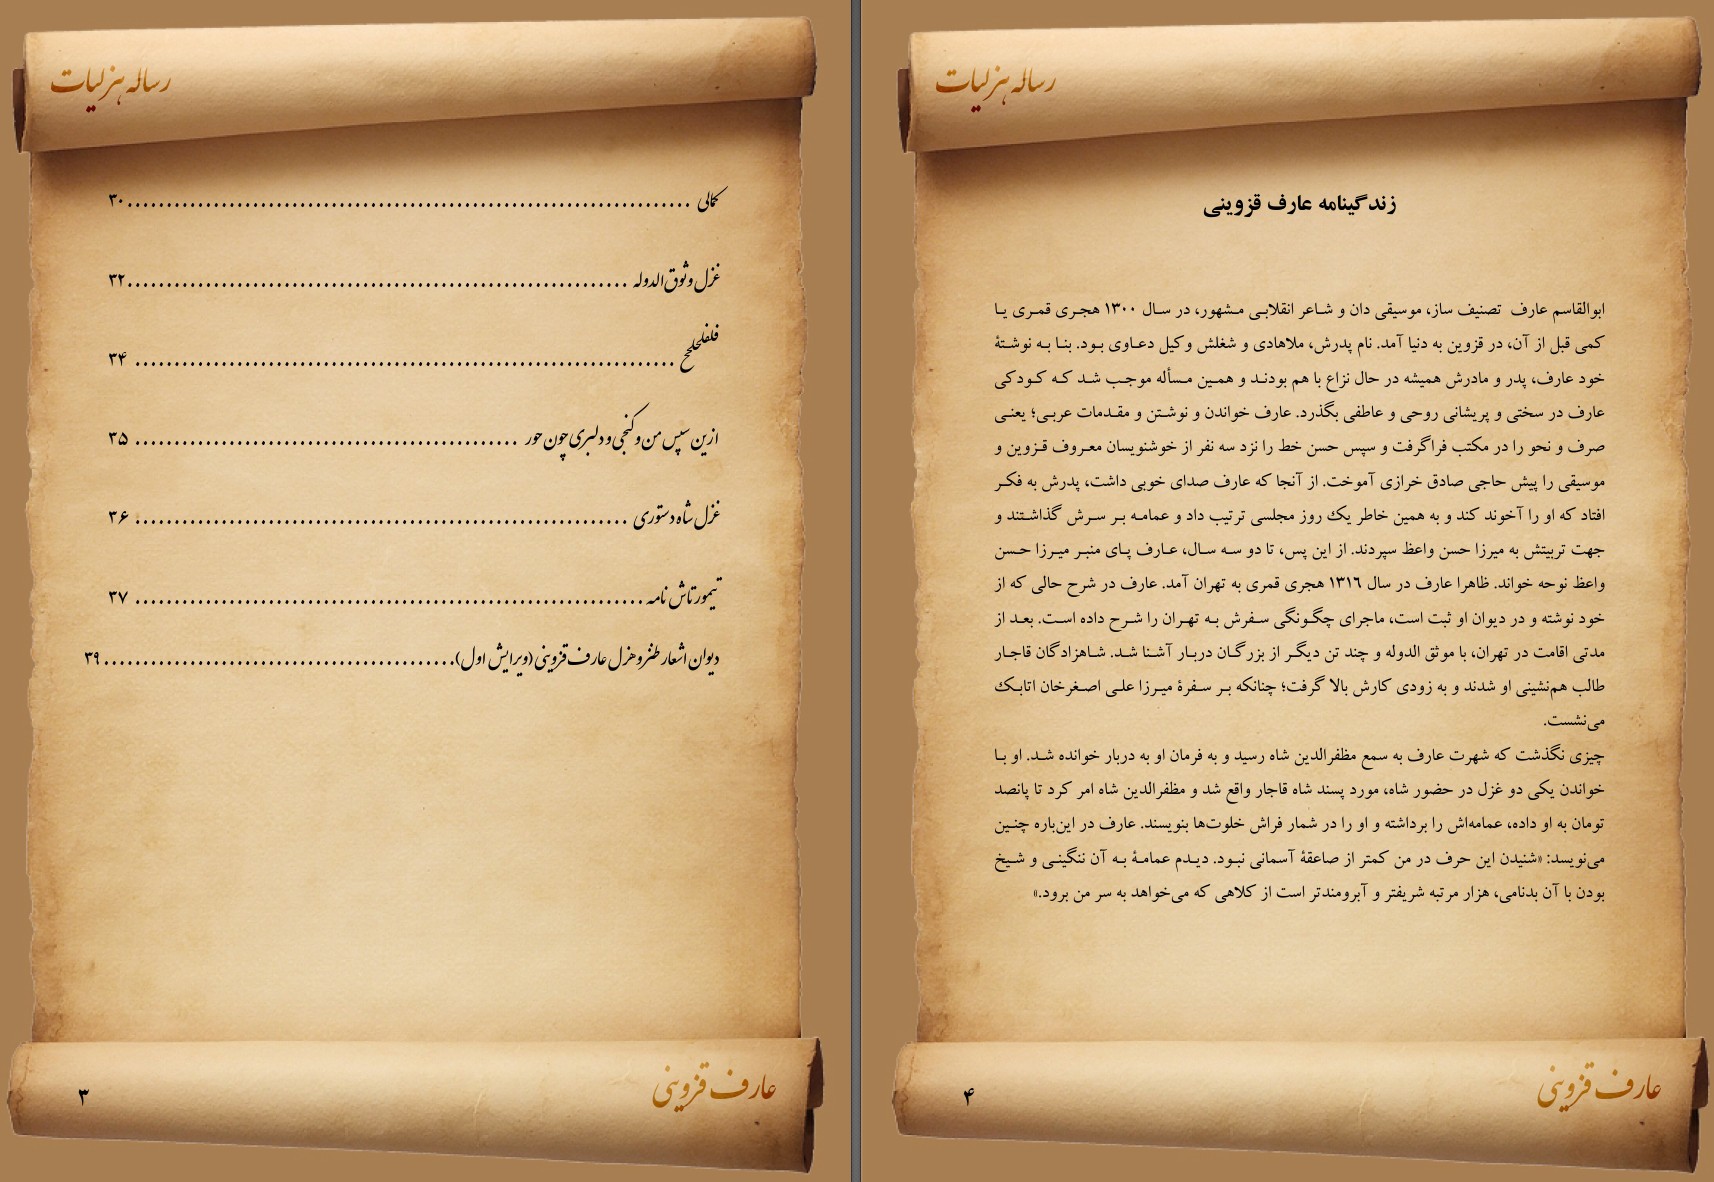 رساله هزلیات
کمالی ۳۰
غزل وثوق الدوله ۳۲
فلفلحلحح ۳۴
ازین سپس من و کنجی و دلبری چون حور ۳۵
غزل شاه دستوری ۳۶
تیمورتاش نامه ۳۷
دیوان اشعار طنز و هزل عارف قزوینی (ویرایش اول) ۳۹
عارف قزوینی
۳
رساله هزلیات
زندگینامه عارف قزوینی
ابوالقاسم عارف تصنیف ساز، موسیقی دان و شاعر انقلابی مشهور، در سال ۱۳۰۰ هجری قمری یا
کمی قبل از آن، در قزوین به دنیا آمد. نام پدرش، ملاهادی و شغلش وکیل دعاوی بود. بنا به نوشتۀ
خود عارف، پدر و مادرش همیشه در حال نزاع با هم بودند و همین مسأله موجب شد که کودکی
عارف در سختی و پریشانی روحی و عاطفی بگذرد. عارف خواندن و نوشتن و مقدمات عربی؛ یعنی
صرف و نحو را در مکتب فراگرفت و سپس حسن خط را نزد سه نفر از خوشنویسان معروف قزوین و
موسیقی را پیش حاجی صادق خرازی آموخت. از آنجا که عارف صدای خوبی داشت، پدرش به فکر
افتاد که او را آخوند کند و به همین خاطر یک روز مجلسی ترتیب داد و عمامه بر سرش گذاشتند و
جهت تربیتش به میرزا حسن واعظ سپردند. از این پس، تا دو سه سال، عارف پای منبر میرزا حسن
واعظ نوحه خواند. ظاهرا عارف در سال ۱۳۱٦ هجری قمری به تهران آمد. عارف در شرح حالی که از
خود نوشته و در دیوان او ثبت است، ماجرای چگونگی سفرش به تهران را شرح داده است. بعد از
مدتی اقامت در تهران، با موثق الدوله و چند تن دیگر از بزرگان دربار آشنا شد. شاهزادگان قاجار
طالب هم‌نشینی او شدند و به زودی کارش بالا گرفت؛ چنانکه بر سفرۀ میرزا علی اصغرخان اتابک
می‌نشست.
چیزی نگذشت که شهرت عارف به سمع مظفرالدین شاه رسید و به فرمان او به دربار خوانده شد. او با
خواندن یکی دو غزل در حضور شاه، مورد پسند شاه قاجار واقع شد و مظفرالدین شاه امر کرد تا پانصد
تومان به او داده، عمامه‌اش را برداشته و او را در شمار فراش خلوت‌ها بنویسند. عارف در این‌باره چنین
می‌نویسد: «شنیدن این حرف در من کمتر از صاعقۀ آسمانی نبود. دیدم عمامۀ به آن ننگینی و شیخ
بودن با آن بدنامی، هزار مرتبه شریفتر و آبرومندتر است از کلاهی که می‌خواهد به سر من برود.»
عارف قزوینی
۴